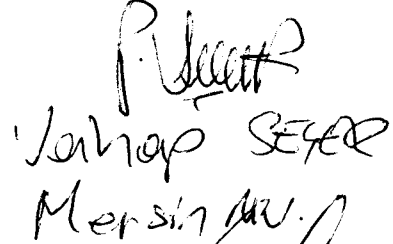 Vahap SEÇER
Mersin MV.